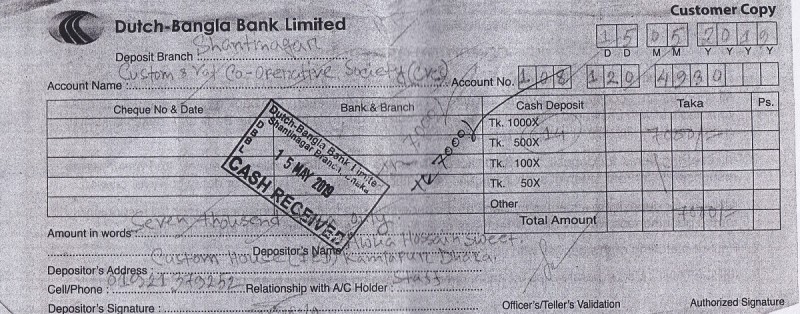 Customer Copy
Dutch-Bangla Bank Limited
15 05 2019
D D M M Y Y Y Y
Deposit Branch : Shantinagar
Account Name : Custom & Vat Co-Operative Society Account No. 108 120 4930
Cheque No & Date Bank & Branch Cash Deposit Taka Ps.
Tk. 1000X
Tk. 500X 14 7000/-
Tk. 100X
Tk. 50X
Other
Total Amount 7000/-
Dutch-Bangla Bank Limite
Shantinagar Branch, Dhaka
DBBL
15 MAY 2019
CASH RECEIVED
7000/
Amount in words : Seven thousand only
Depositor's Name Hossain Sweet
Depositor's Address : Custom House Kamlapur Dhaka
Cell/Phone : Relationship with A/C Holder : Staff
Depositor's Signature : Officer's/Teller's Validation Authorized Signature